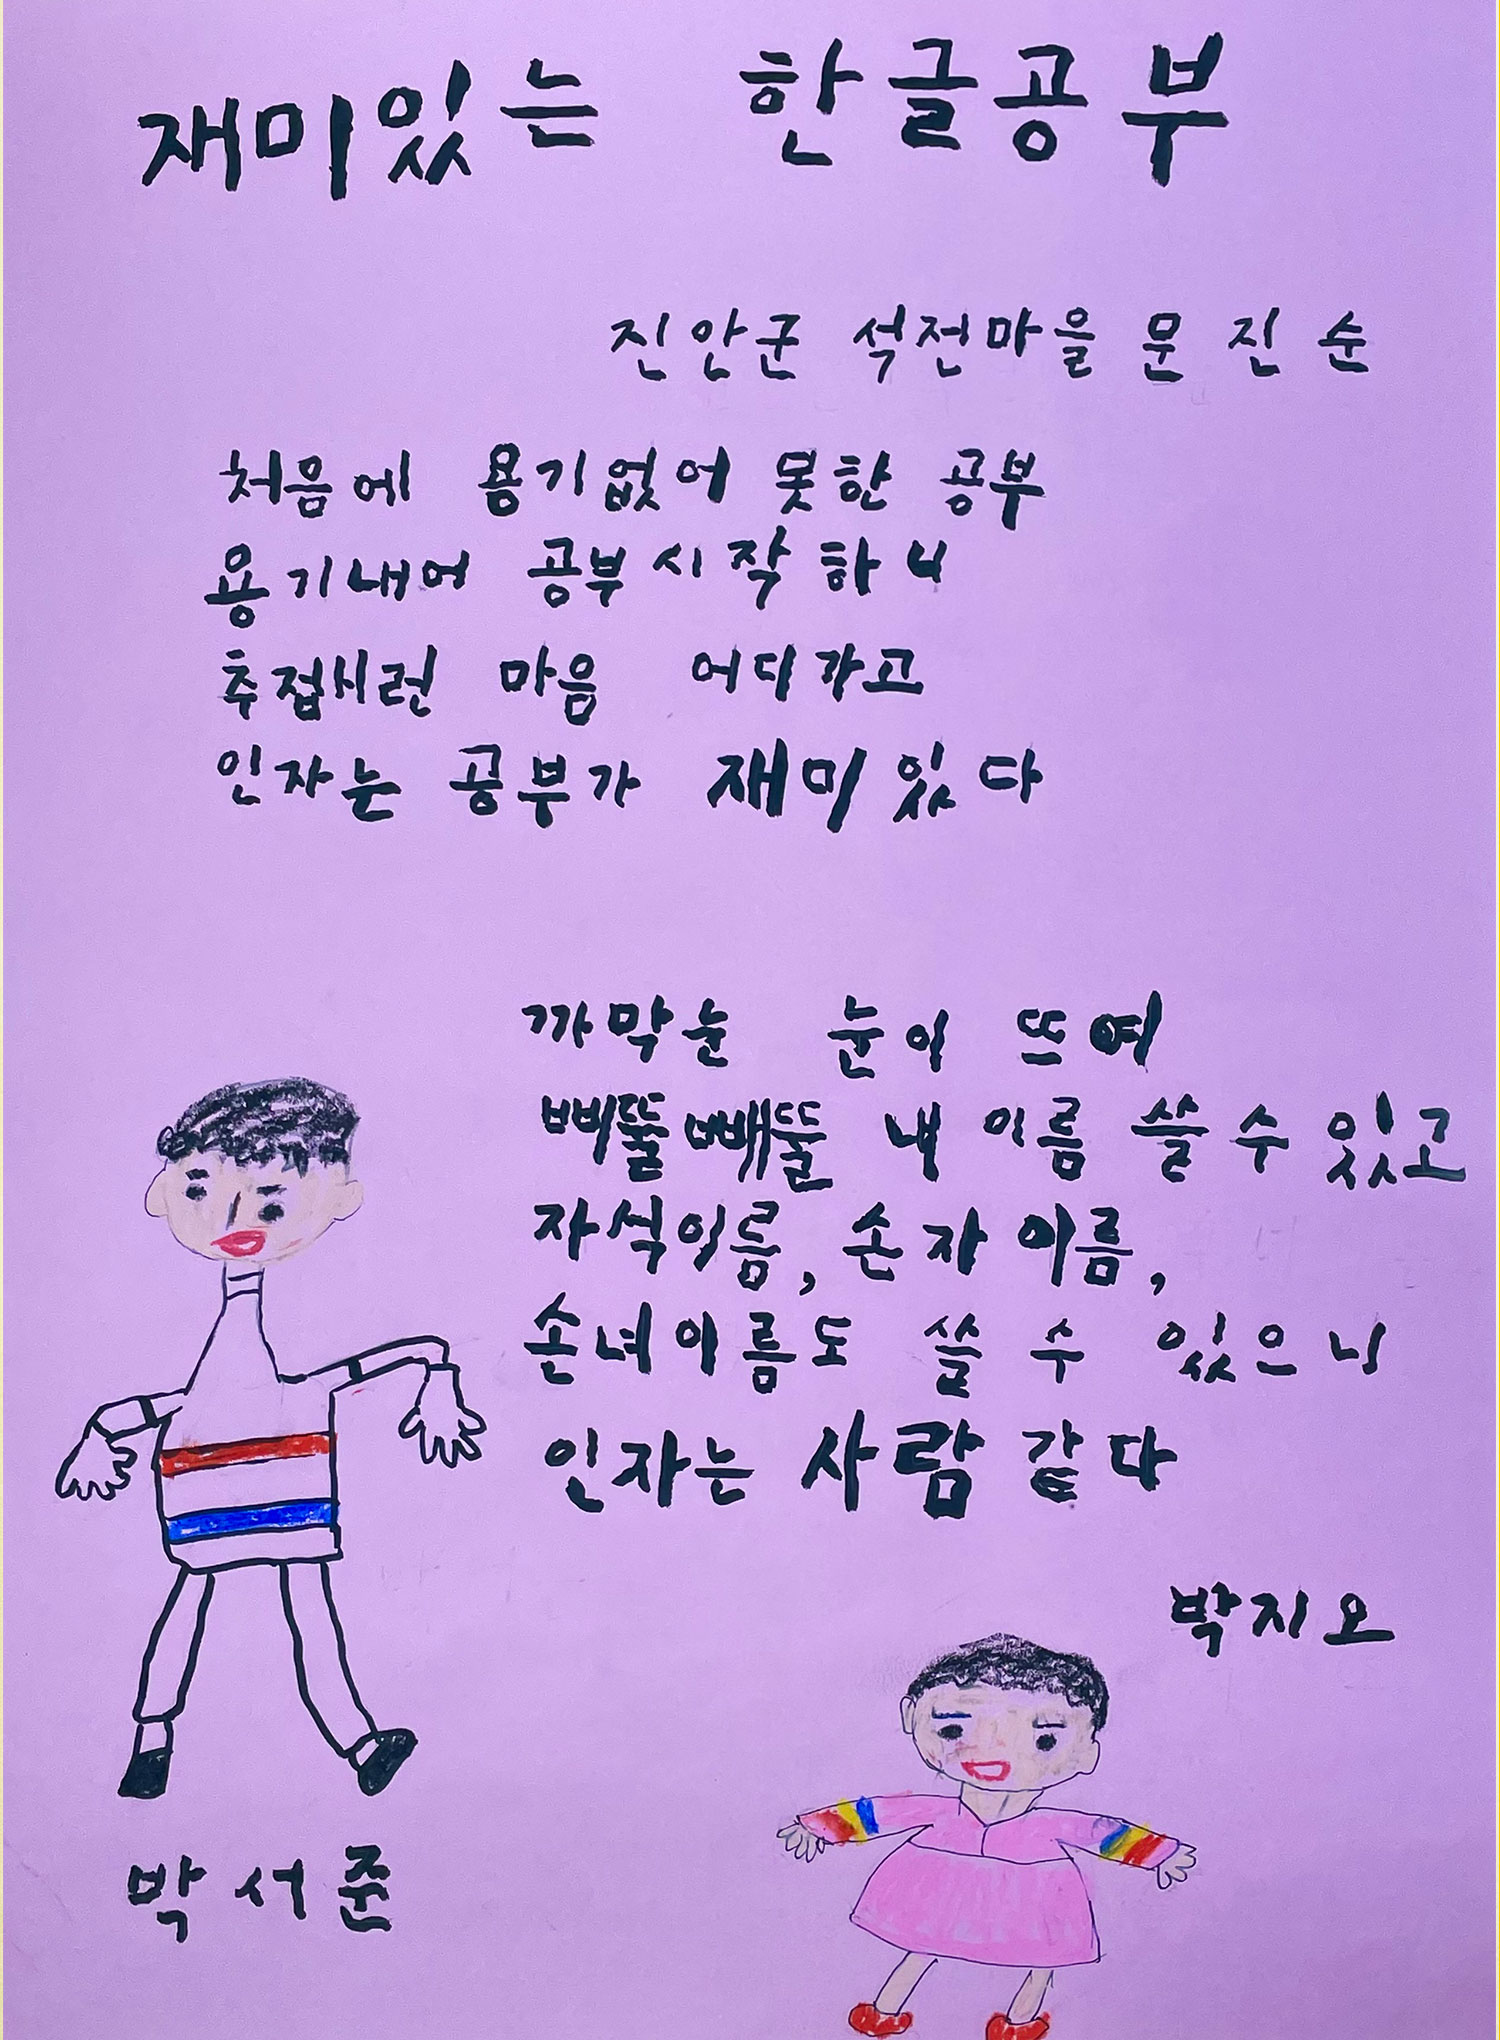 재미있는 한글공부
진안군 석전마을 문진순
처음에 용기없어 못한 공부
용기내어 공부시작하니
추접시런 마음 어디가고
인자는 공부가 재미있다
까막눈 눈이 뜨여
삐뚤빼뚤 내 이름 쓸 수 있고
자식이름, 손자 이름,
손녀이름도 쓸 수 있으니
인자는 사람 같다
박지오
박서준